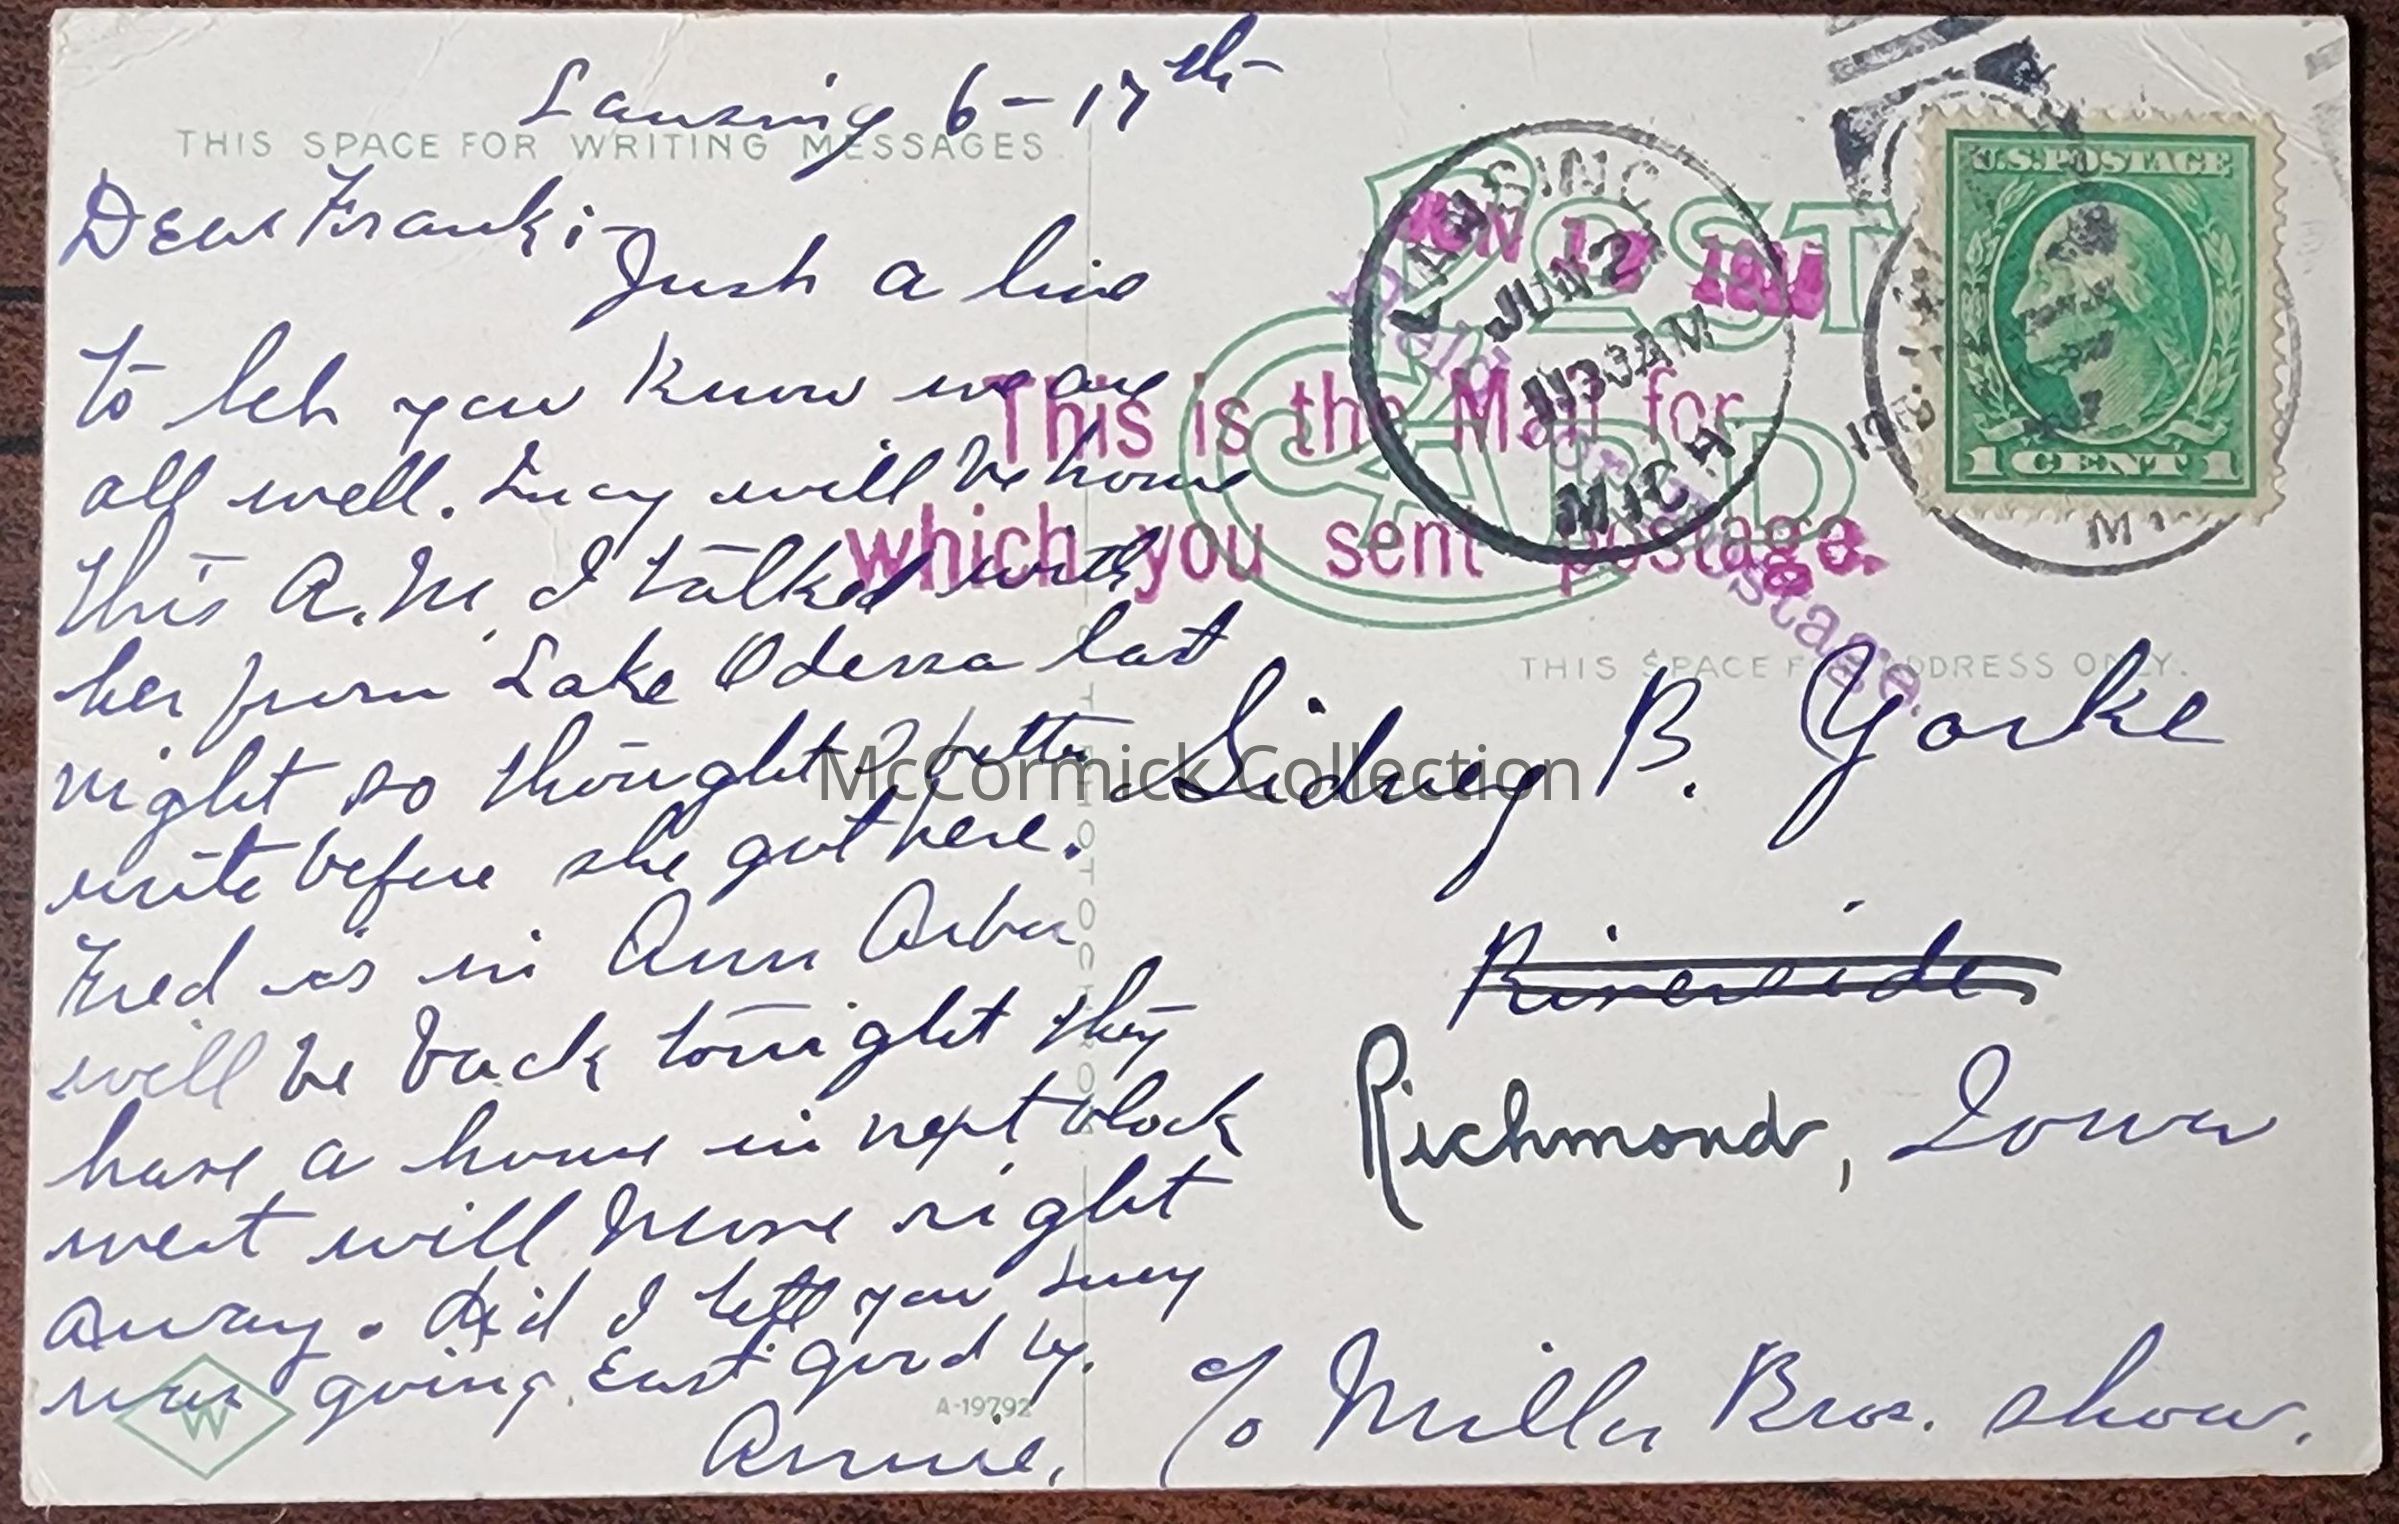 Lansing 6-17th
THIS SPACE FOR WRITING MESSAGES
Dear Frank:-
Just a line
to let you know we are
all well. Lucy will be home
this A.M. I talked with
her from Lake Odessa last
night so thought I better
write before she got here.
Fred is in Ann Arbor
will be back tonight they
have a home in next block
west will move right
away. did I tell you Lucy
was going East good by.
Annie.
W
A-19792
POST
CARD
U.S. POSTAGE
1 CENT 1
LANSING
JUN 2
AM
MICH
JUN 19
This is the Mail for
which you sent postage.
postage.
THIS SPACE FOR ADDRESS ONLY.
Sidney B. Yorke
Riverside
Richmond, Iowa
c/o Miller Bros. show.
McCormick Collection